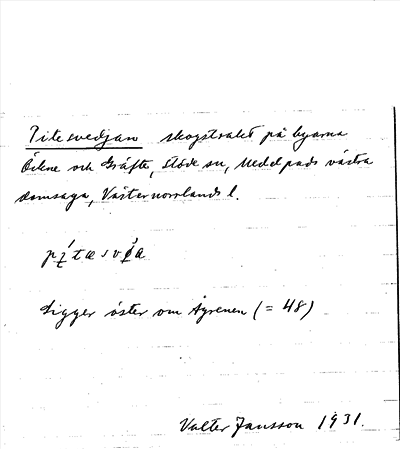 Pitesvedjan skogstrakt på byarna
Öckne och Gräfte, Stöde sn, Medelpads västra
domsaga, Västernorrlands l.
Ligger öster om Åyrenen (= 48)
Valter Jansson 1931.